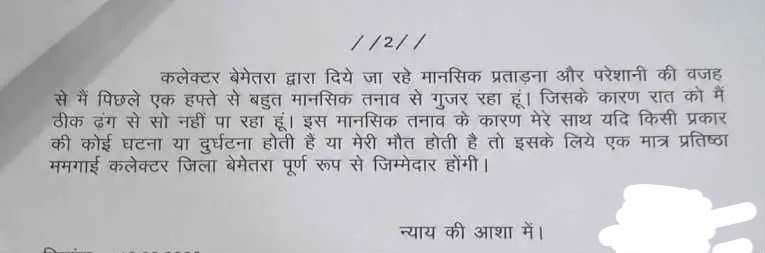 //2//
कलेक्टर बेमेतरा द्वारा दिये जा रहे मानसिक प्रताड़ना और परेशानी की वजह
से मैं पिछले एक हफ्ते से बहुत मानसिक तनाव से गुजर रहा हूं। जिसके कारण रात को मैं
ठीक ढंग से सो नहीं पा रहा हूं। इस मानसिक तनाव के कारण मेरे साथ यदि किसी प्रकार
की कोई घटना या दुर्घटना होती है या मेरी मौत होती है तो इसके लिये एक मात्र प्रतिष्ठा
ममगाई कलेक्टर जिला बेमेतरा पूर्ण रूप से जिम्मेदार होंगी।
न्याय की आशा में।